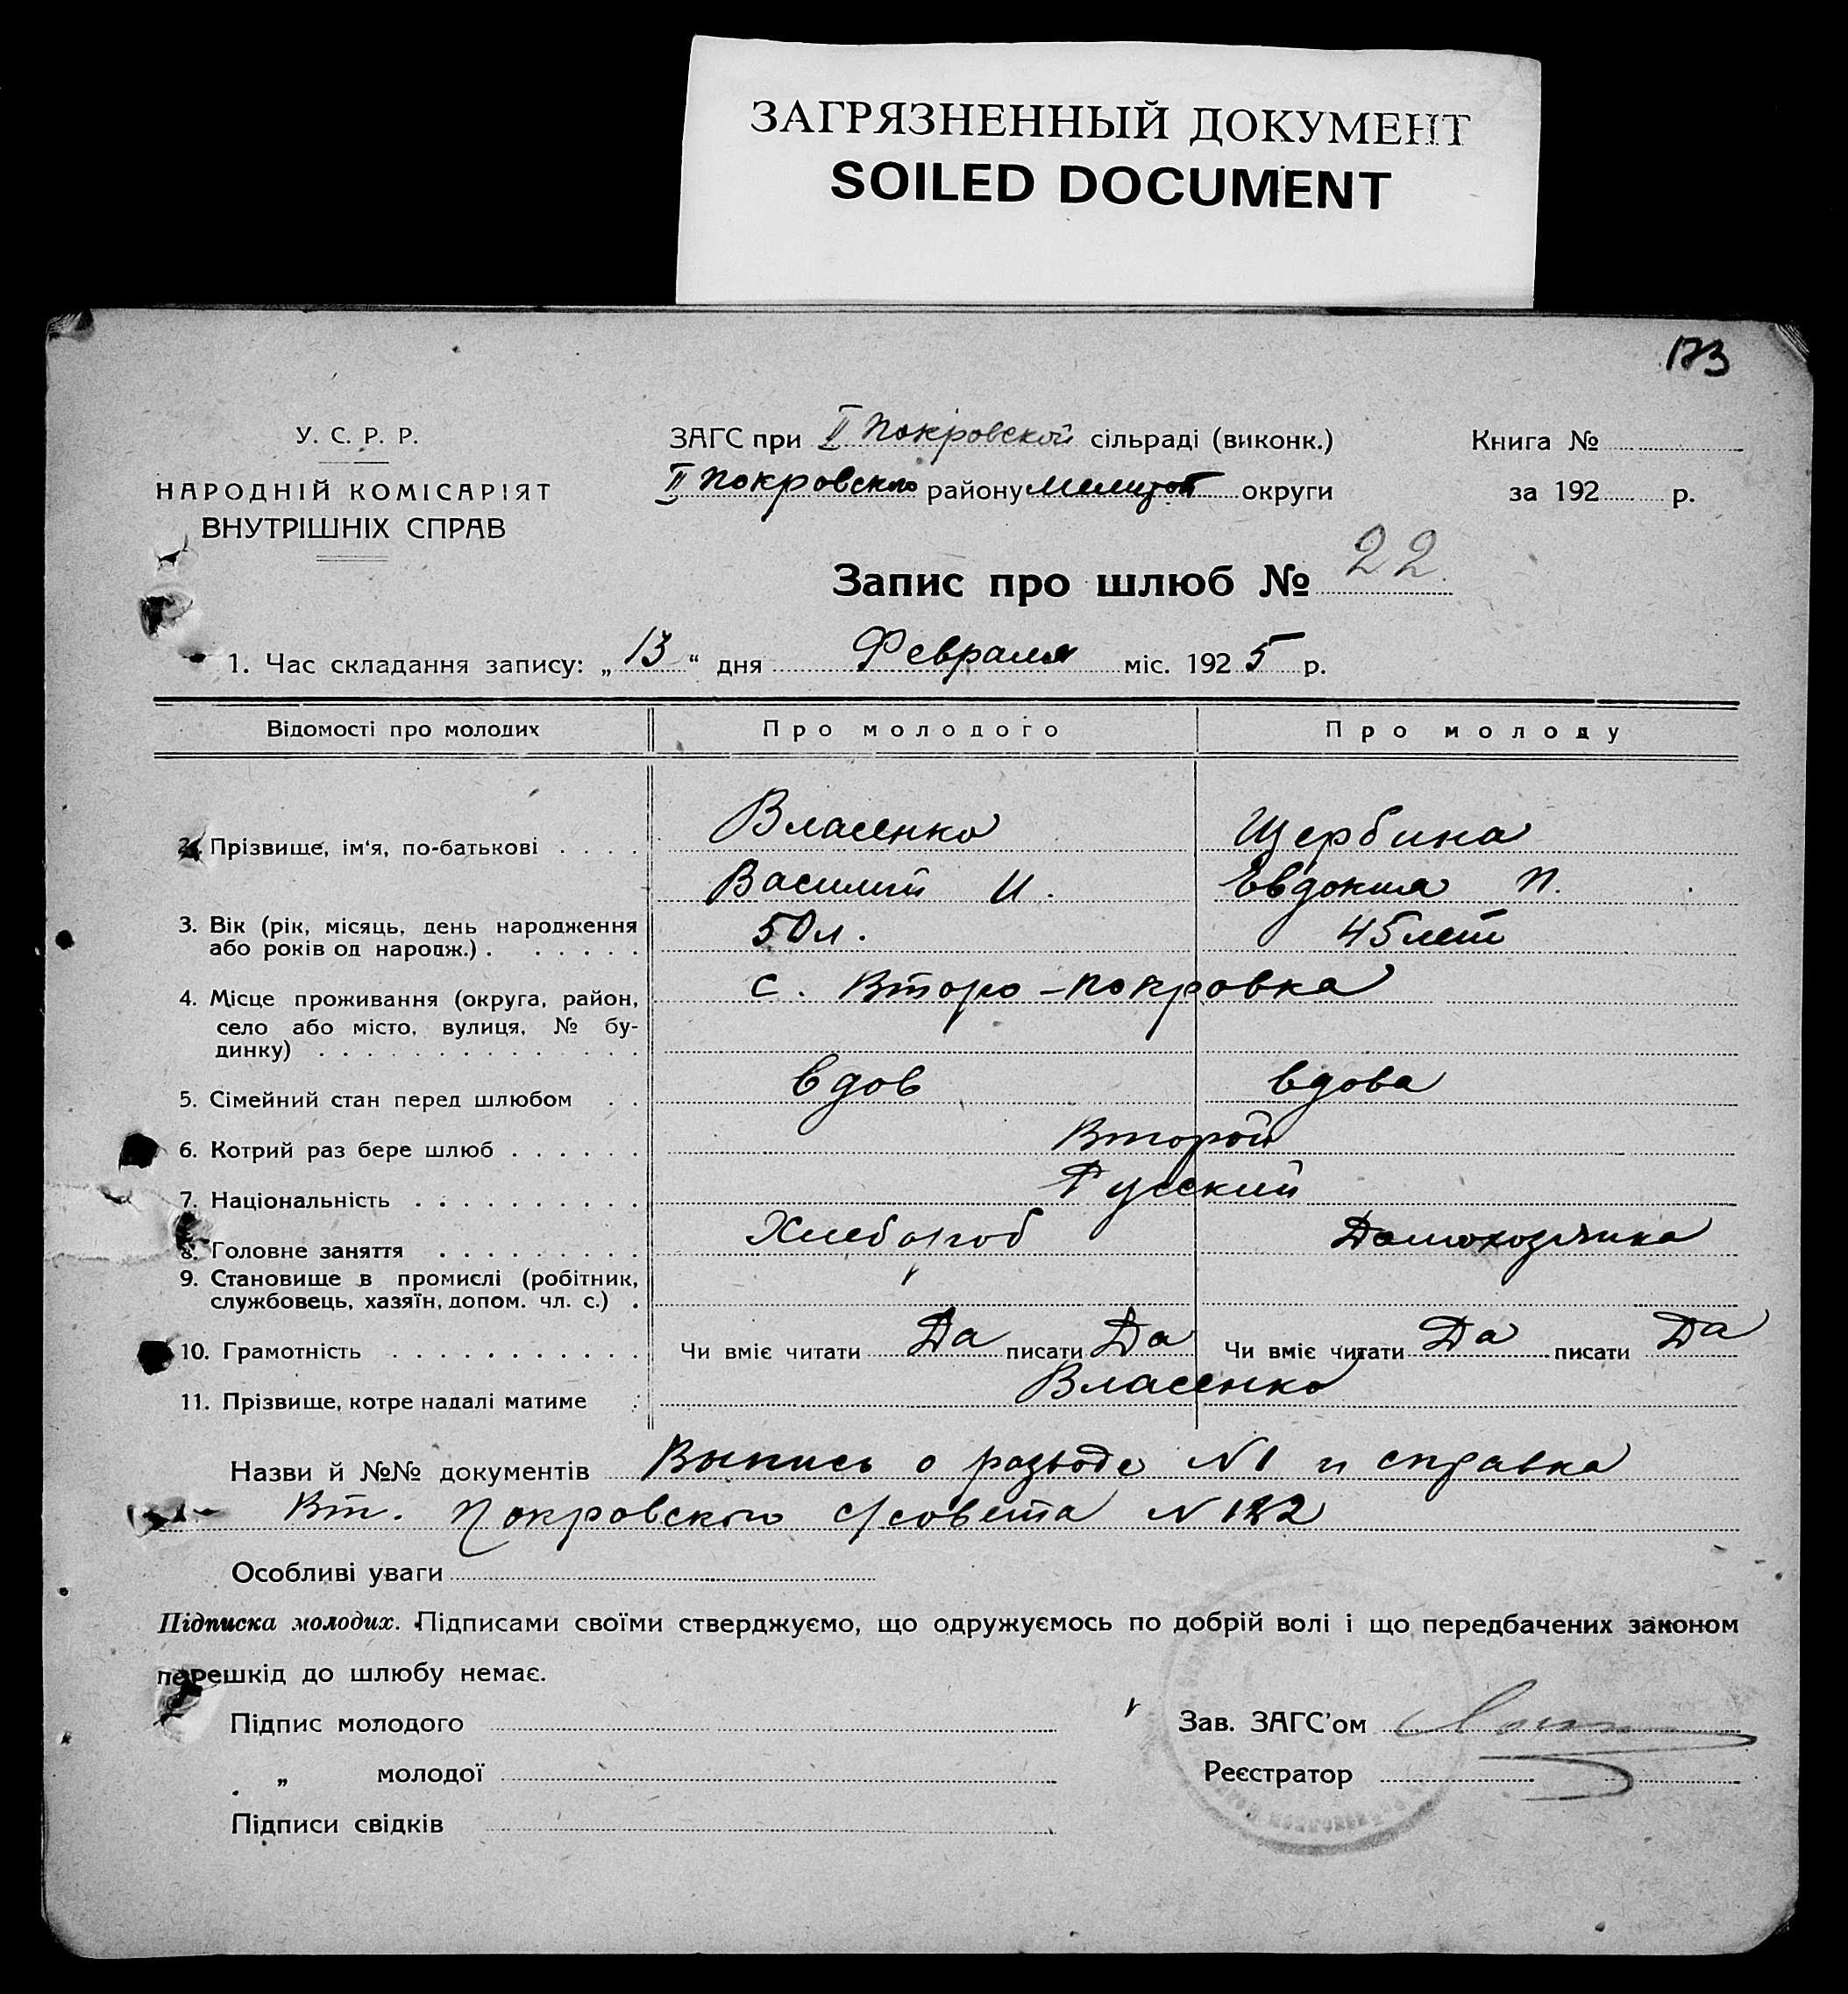 ЗАГРЯЗНЕННЫЙ ДОКУМЕНТ
SOILED DOCUMENT
173
У. С. Р. Р.
НАРОДНІЙ КОМІСАРІЯТ
ВНУТРІШНІХ СПРАВ
ЗАГС при II Покровской сільраді (виконк.)
II Покровского району Мелитоп округи
Книга №
за 192 р.
Запис про шлюб № 22
1. Час складання запису: „13“ дня Февраля міс. 1925 р.
Відомості про молодих Про молодого Про молоду
2. Прізвище, ім'я, по-батькові Власенко Щербина
Василий И. Евдокия П.
3. Вік (рік, місяць, день народження
або років од народж.) 50 л. 45 лет
4. Місце проживання (округа, район, с. Второ-Покровка
село або місто, вулиця, № бу-
динку)
5. Сімейний стан перед шлюбом вдов вдова
6. Котрий раз бере шлюб Второй
7. Національність Русский
8. Головне заняття Хлебороб Домохозяика
9. Становище в промислі (робітник,
службовець, хазяїн, допом. чл. с.)
10. Грамотність Чи вміє читати Да писати Да Чи вміє читати Да писати Да
11. Прізвище, котре надалі матиме Власенко
Назви й №№ документів Выпись о разводе N1 и справка
Вт. Покровского с/совета N 182
Особливі уваги
Підписка молодих. Підписами своїми стверджуємо, що одружуємось по добрій волі і що передбачених законом
перешкід до шлюбу немає.
Підпис молодого
„ молодої
Підписи свідків
Зав. ЗАГС'ом
Реєстратор